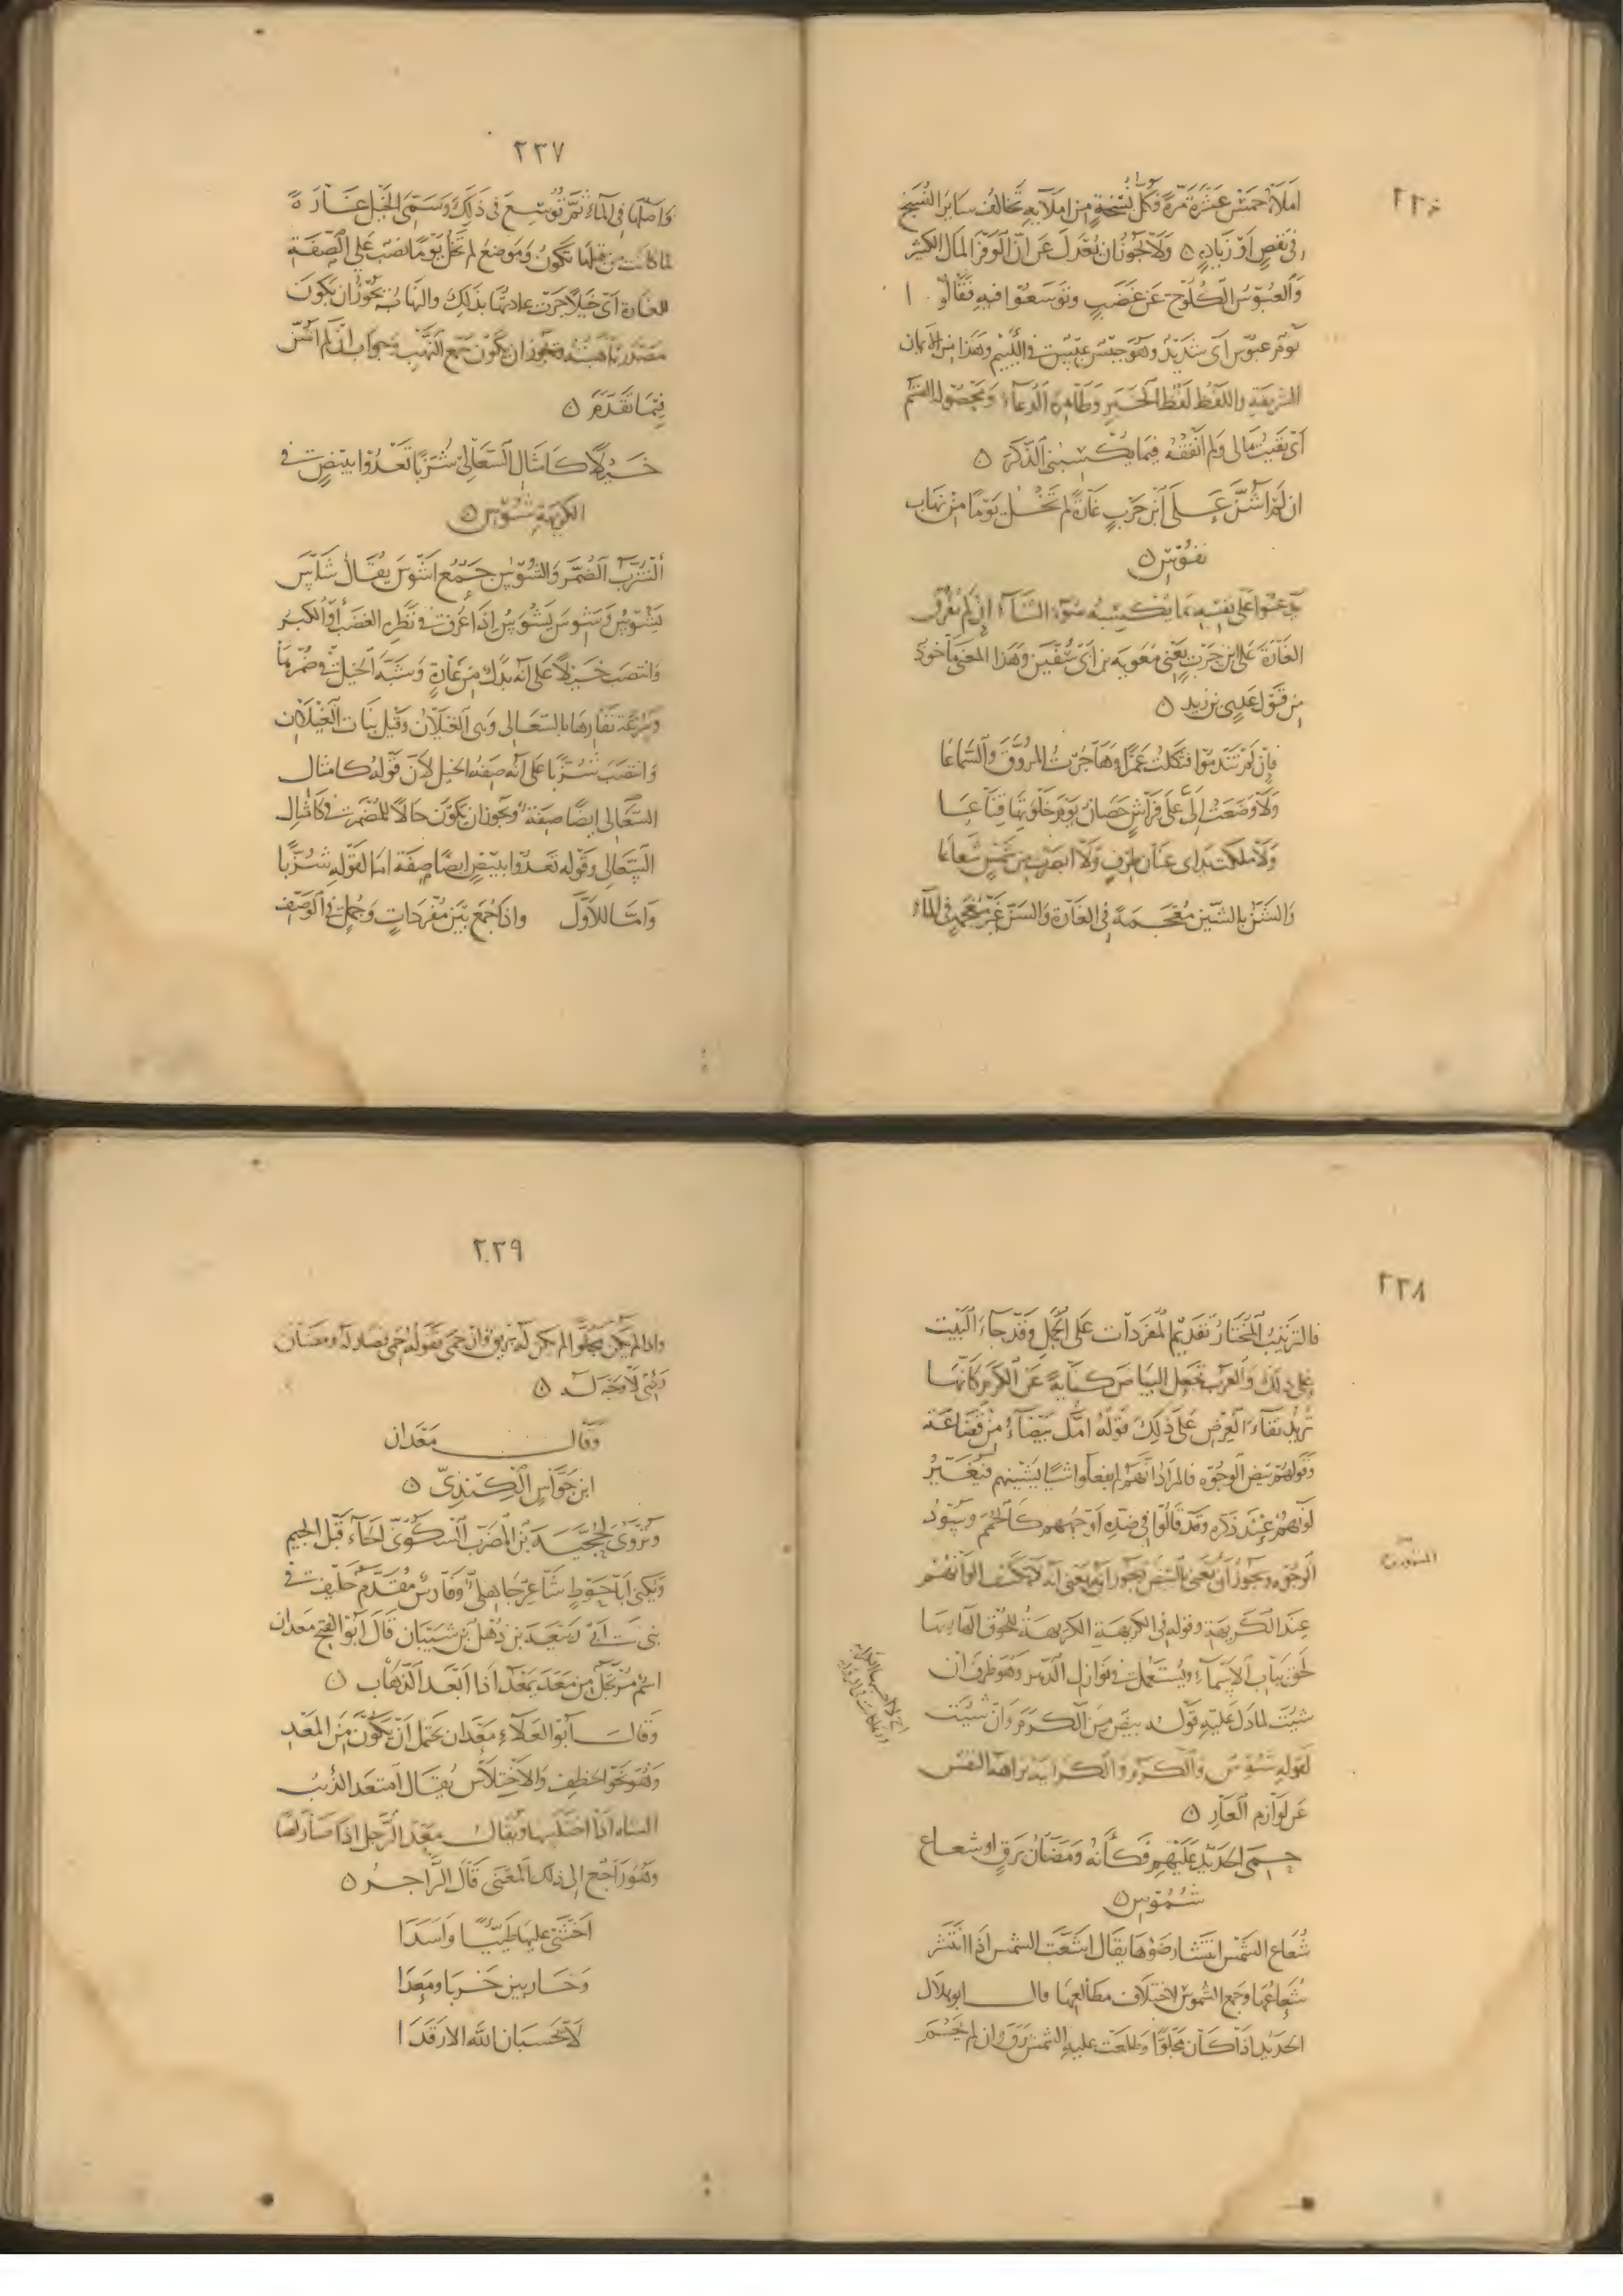 ٢٣٦
املاه خمس عشرة مرة فكل نسخة من املآيه تخالف ساير النسخ
في نقص او زيادة ولا يجوز ان يعدل عن ان الوفر المال الكثير
والعبوس الكلوح عن غضب وتوسعوا فيه فقالوا
يوم عبوس اي شديد وهو جبس عبس في اللئيم وهذا من الايمان
الشريفة واللفظ لفظ الخبر وظاهره الدعاء ومحصوله القسم
اي بقيت مالي ولم انفقه فيما يكسبني الذكر
ان لم اشن على ابن حرب غارة لم تخل يوما من نهاب
نفوس
يدعوا على نفسه بما يكسبه سوء الثناء ان لم يفرق
الغارة على ابن حرب يعني معوية بن ابي سفين وهذا المعنى ماخوذ
من قول عدي بن زيد
فان لم تندموا فثكلت عمرا وهاجرت المروق والسماعا
ولا وضعت الي على فراش حصان يوم خلوتها قناعا
ولا ملكت يداي عنان طرف ولا ابصرت من شمس شعاعا
والشن بالشين معجمة في الغارة والسن غير معجمة في الماء
٢٣٧
واصلها في الماء ثم توسع في ذلك وسمى الخيل غارة
لما كانت من قبلها تكون وموضع لم تخل يوما نصب على الصفة
للغارة اي خيلا جرت عادتها بذلك والنهاب يجوز ان يكون
مصدر ناهبته ويجوز ان يكون جمع النهب وجواب ان لم اشن
فيما تقدم
خيلا كامثال السعالي شزبا تعدوا ببيض في
الكريهة شوس
الشزب الضمر والشوس جمع اشوس يقال شاس
يشوس وشوس يشوس اذا عرف في نظره الغضب او الكبر
وانتصب خيلا على انه بدل من غارة وشبه الخيل في ضمرها
وسرعة نفارها بالسعالى وهي الغيلان وقيل بنات الغيلان
وانتصب شزبا على انه صفة الخيل لان قوله كامثال
السعالى ايضا صفة ويجوز ان يكون حالا للمضمر في كامثال
السعالى وقوله تعدوا ببيض ايضا صفة اما لقوله شزبا
واما للاول واذا جمع بين مفردات وجمل في الوصف
٢٣٨
فالترتيب المختار تقديم المفردات على الجمل وقد جاء البيت
على ذلك والعرب تجعل البياض كناية عن الكرم كانها
تريد نقاء العرض على ذلك قوله امك بيضاء من قضاعة
وقولهم بيض الوجوه فالمراد انهم لم يفعلوا شيا يشينهم فيغير
لونهم عند ذكره وقد قالوا في ضده اوجههم كالحمم وسود
الوجوه ويجوز ان يعني بالبيض يجوز انه يعني انه لا تكسف الوانهم
عند الكريهة وقوله في الكريهة الكريهة للحوق الهاء بها
لحق بباب الاسماء ويستعمل في نوازل الدهر وهو ظرف ان
شيت لما دل عليه قوله بيض من الكرم وان شيت
لقوله شوس والكرم والكرايد نزاهة النفس
عن لوازم العار
حمي الحديد عليهم فكانه ومضان برق او شعاع
شموس
شعاع الشمس انتشار ضوءها يقال اشعت الشمس اذا انتشر
شعاعها وجمع الشموس لاختلاف مطالعها قال ابو هلال
الحديد اذا كان مجلوا وطلعت عليه الشمس برق وان لم يحم
٢٣٩
واذا لم يكن مجلوا لم يكن له بريق وان حمي فقوله حمي فصار له ومضان
ردئ لا وجه له
وقال معدان
ابن جواس الكندي
ويروى لحجية بن المضرب السكوني الحاء قبل الجيم
ويكنى ابا حوط شاعر جاهلي وفارس مقدم حليف في
بني ابي ربيعة بن ذهل بن شيبان قال ابو الفتح معدان
اسم مرتجل من معد يمعد اذا ابعد الذهاب
وقال ابو العلاء معدان يحتمل ان يكون من المعد
وهو نحو الخطف والاختلاس يقال امتعد الذيب
الشاه اذا اختلسها ويقال معد الرجل اذا صار لصا
وهو راجع الى ذلك المعنى قال الراجز
اخشى عليها طيئا واسدا
وخاربين خربا ومعدا
لا يحسبان الله الا رقدا